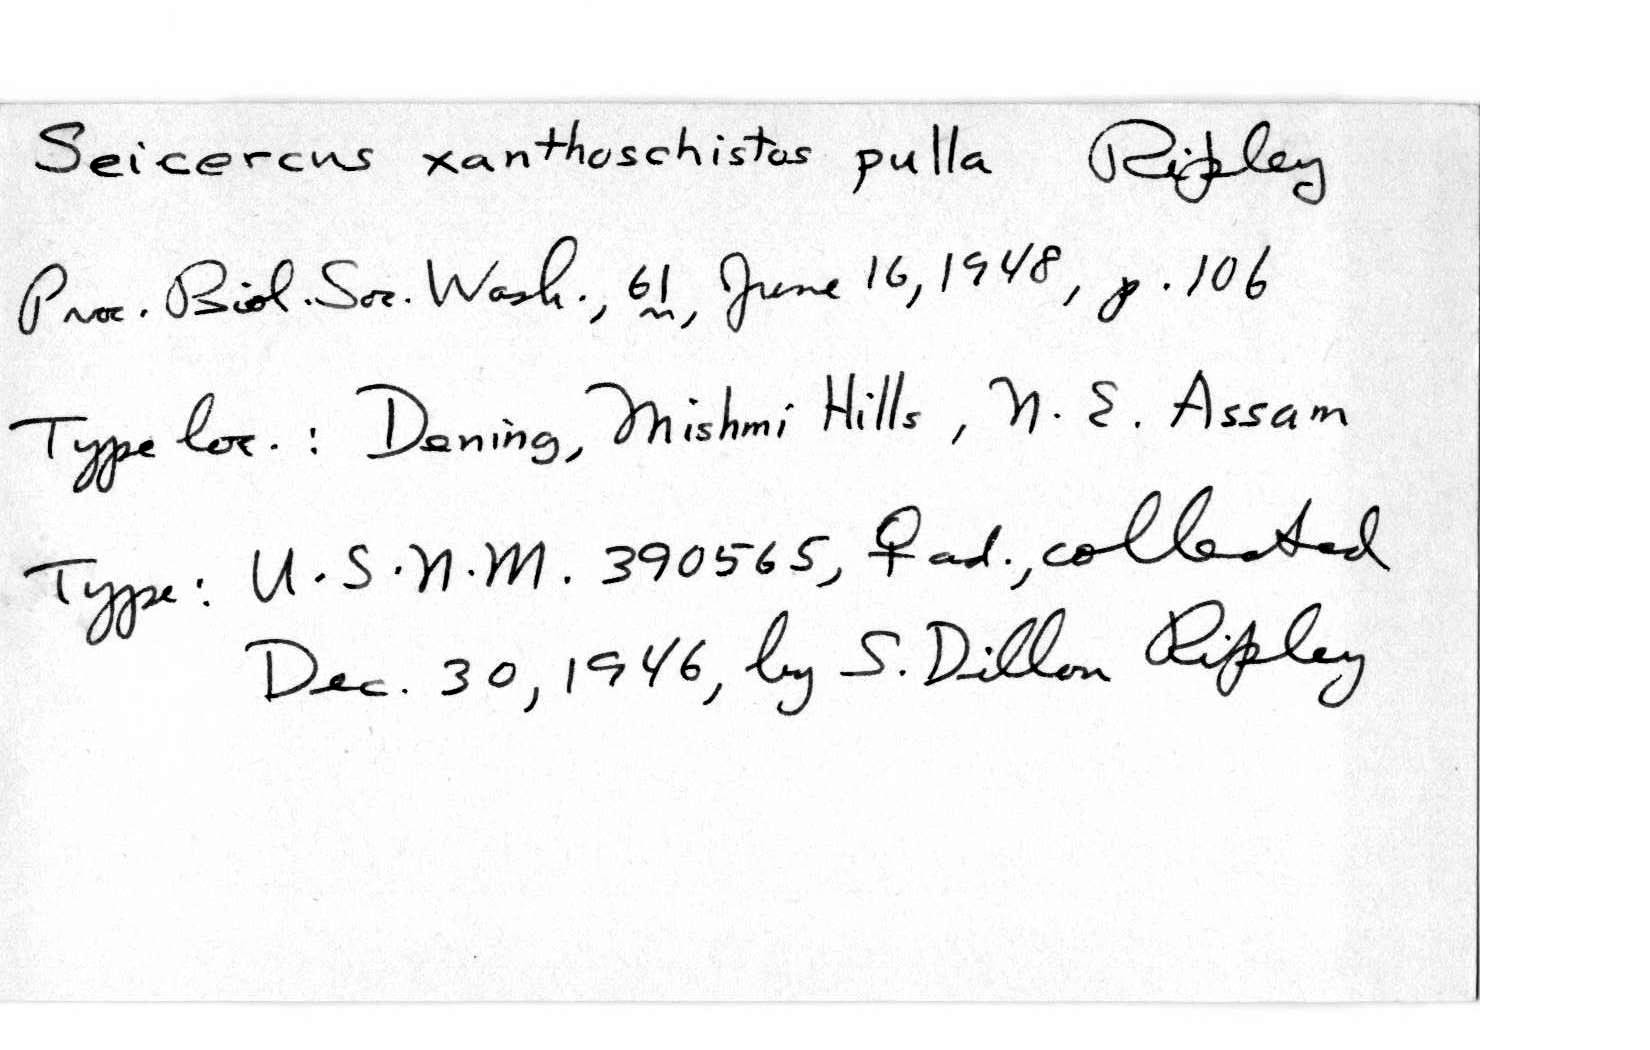 Seicercus xanthoschistos pulla Ripley
Proc. Biol. Soc. Wash., 61, June 16, 1948, p. 106
Type loc.: Dening, Mishmi Hills, N. E. Assam
Type: U.S.N.M. 390565, ♀ ad., collected
Dec. 30, 1946, by S. Dillon Ripley